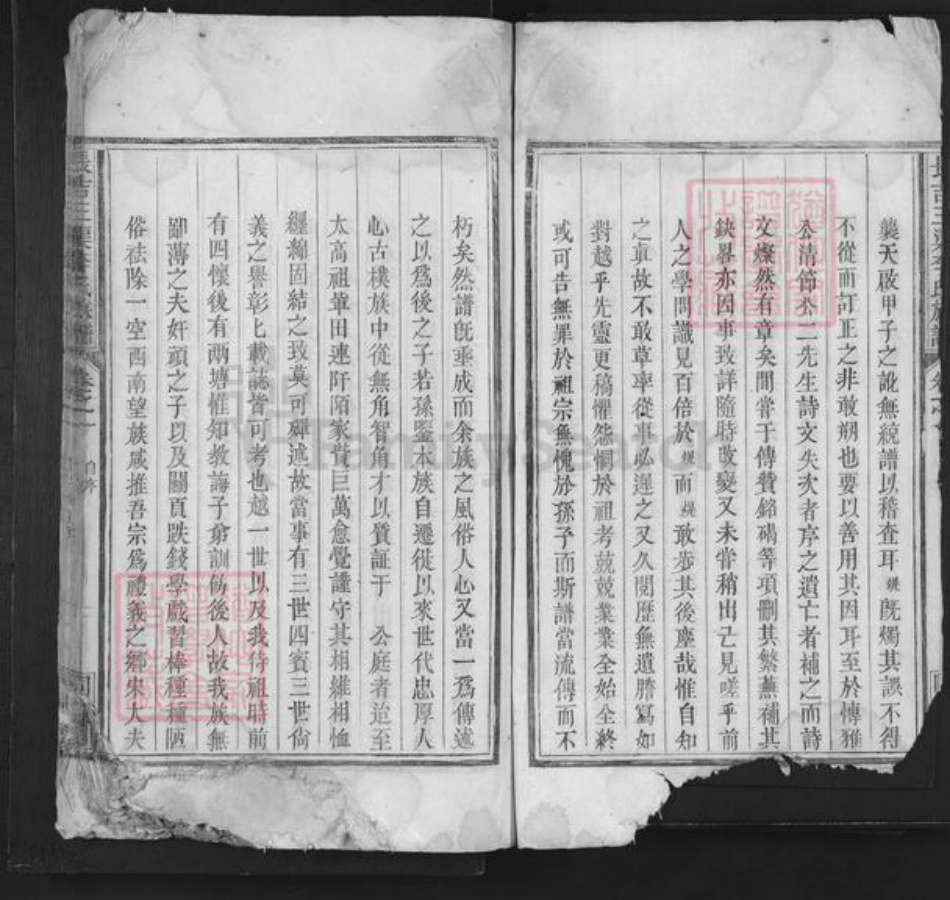 襲天啟甲子之訛無統譜以稽查耳既燭其誤不得
不從而訂正之非敢剏也要以善用其因耳至於惇雅
公清節公二先生詩文失次者序之遺亡者補之而詩
文燦然有章矣間嘗于傳贊銘碣等項刪其繁蕪補其
缺畧亦因事致詳隨時改變又未嘗稍出己見嗟乎前
人之學問識見百倍於 而 敢步其後塵哉惟自知
之真故不敢草率從事必遲之又久閱歷無遺謄寫如
對越乎先靈更稿懼怨恫於祖考兢兢業業全始全終
或可告無罪於祖宗無愧於孫子而斯譜當流傳而不
朽矣然譜既垂成而余族之風俗人心又當一為傳述
之以為後之子若孫鑒本族自遷徙以來世代忠厚人
心古樸族中從無角智角才以質証于 公庭者迨至
太高祖華田連阡陌家貲巨萬愈覺謹守其相維相恤
纏綿固結之致莫可殫述故當事有三世四賓三世尙
義之譽彰彰載誌皆可考也越一世以及我侍祖時前
有四懷後有兩塘惟知教誨子弟訓飭後人故我族無
鄙薄之夫奸頑之子以及鬭頁跌錢學戲習棒種種陋
俗祛除一空西南望族咸推吾宗為禮義之鄉宋大夫